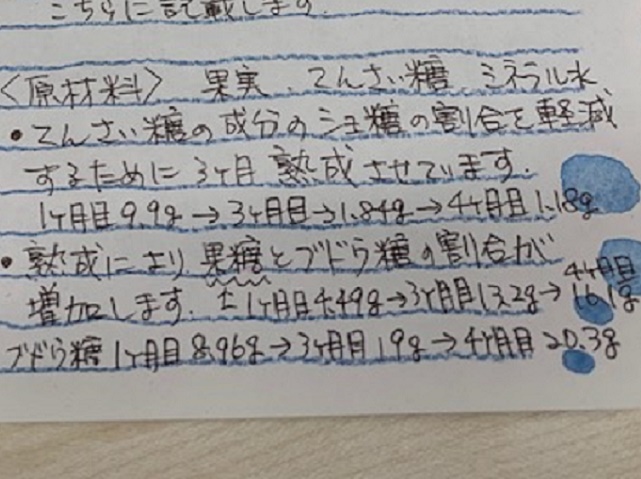 こちらに記載します.
〈原材料〉 果実、てんさい糖、ミネラル水
・てんさい糖の成分のショ糖の割合を軽減
するために3ヶ月熟成させています.
1ヶ月目9.9g→3ヶ月目→1.84g→4ヶ月目1.18g
・熟成により果糖とブドウ糖の割合が
増加します. 1ヶ月目4.49g→3ヶ月目13.2g→4ヶ月目16.1g
ブドウ糖1ヶ月目8.96g→3ヶ月目19g→4ヶ月目20.3g